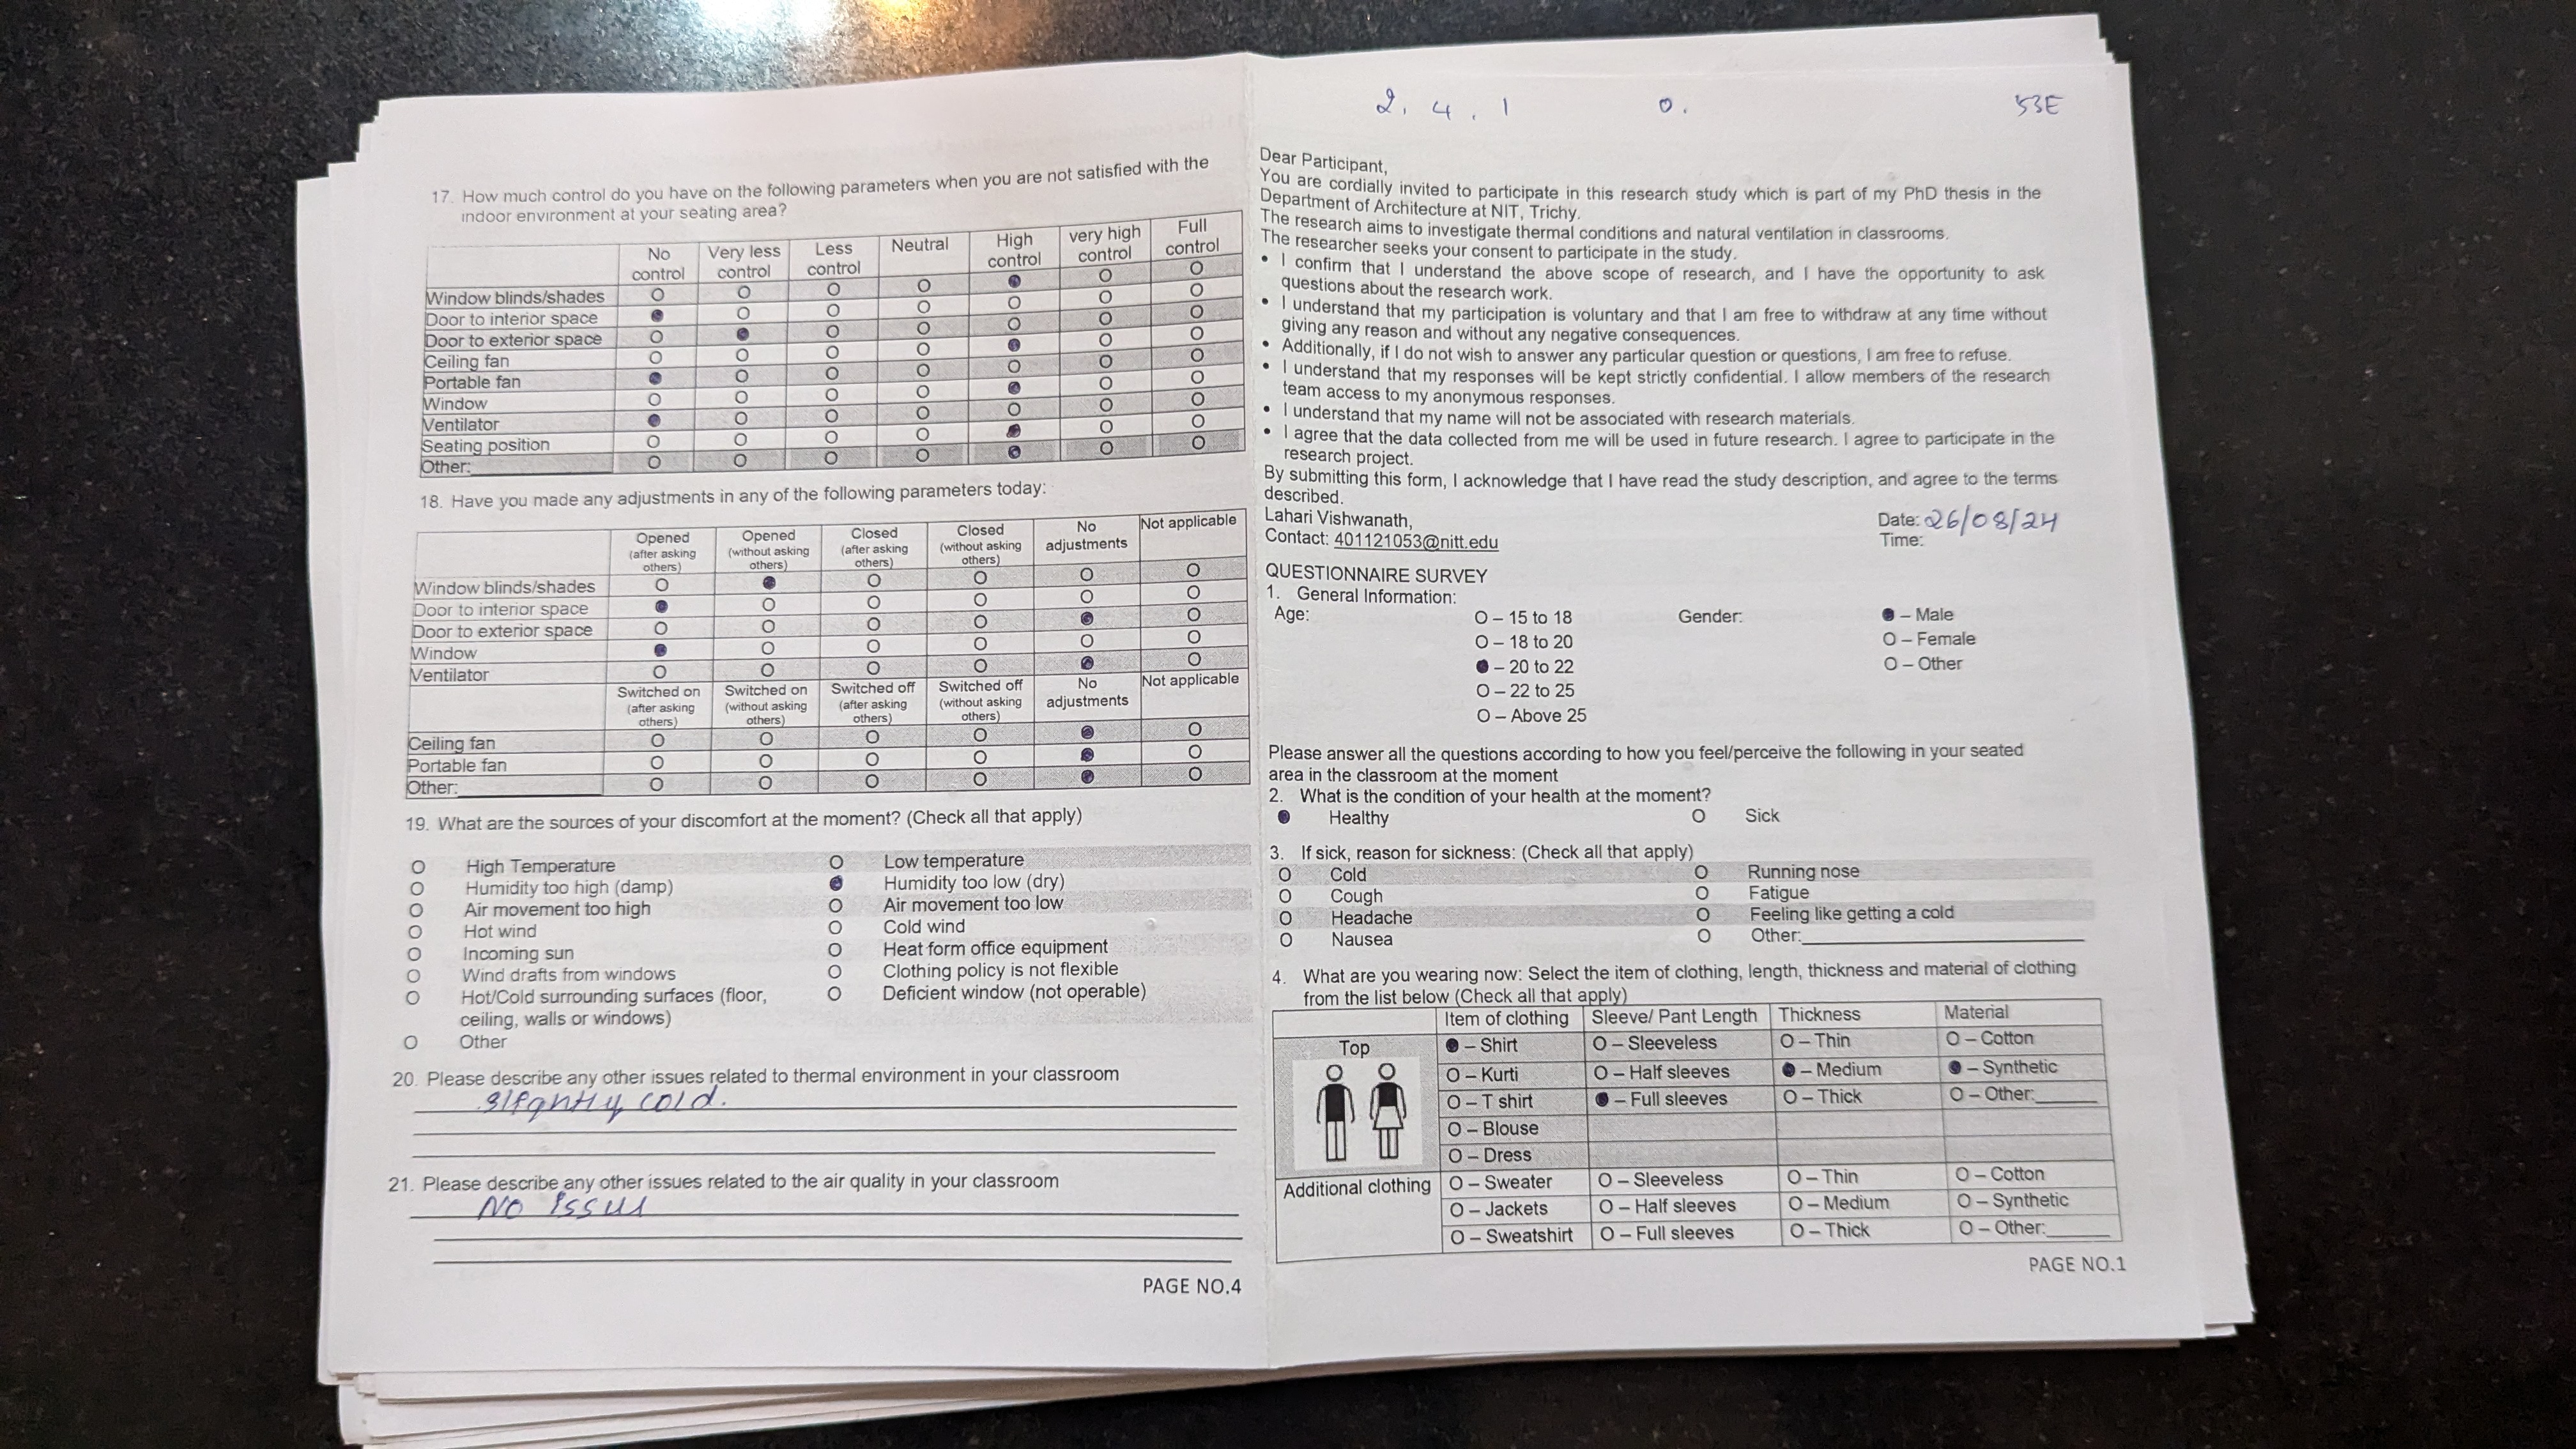 17. How much control do you have on the following parameters when you are not satisfied with the
indoor environment at your seating area?
No control Very less control Less control Neutral High control very high control Full control
Window blinds/shades O O O O ● O O
Door to interior space ● O O O O O O
Door to exterior space O ● O O O O O
Ceiling fan O O O O ● O O
Portable fan ● O O O O O O
Window O O O O ● O O
Ventilator ● O O O O O O
Seating position O O O O ● O O
Other: O O O O ● O O
18. Have you made any adjustments in any of the following parameters today:
Opened (after asking others) Opened (without asking others) Closed (after asking others) Closed (without asking others) No adjustments Not applicable
Window blinds/shades O ● O O O O
Door to interior space ● O O O O O
Door to exterior space O O O O ● O
Window ● O O O O O
Ventilator O O O O ● O
Switched on (after asking others) Switched on (without asking others) Switched off (after asking others) Switched off (without asking others) No adjustments Not applicable
Ceiling fan O O O O ● O
Portable fan O O O O ● O
Other: O O O O ● O
19. What are the sources of your discomfort at the moment? (Check all that apply)
O High Temperature O Low temperature
O Humidity too high (damp) ● Humidity too low (dry)
O Air movement too high O Air movement too low
O Hot wind O Cold wind
O Incoming sun O Heat form office equipment
O Wind drafts from windows O Clothing policy is not flexible
O Hot/Cold surrounding surfaces (floor, O Deficient window (not operable)
ceiling, walls or windows)
O Other
20. Please describe any other issues related to thermal environment in your classroom
slightly cold.
21. Please describe any other issues related to the air quality in your classroom
No issue
PAGE NO.4
2. 4. 1 0. 53E
Dear Participant,
You are cordially invited to participate in this research study which is part of my PhD thesis in the
Department of Architecture at NIT, Trichy.
The research aims to investigate thermal conditions and natural ventilation in classrooms.
The researcher seeks your consent to participate in the study.
• I confirm that I understand the above scope of research, and I have the opportunity to ask
questions about the research work.
• I understand that my participation is voluntary and that I am free to withdraw at any time without
giving any reason and without any negative consequences.
• Additionally, if I do not wish to answer any particular question or questions, I am free to refuse.
• I understand that my responses will be kept strictly confidential. I allow members of the research
team access to my anonymous responses.
• I understand that my name will not be associated with research materials.
• I agree that the data collected from me will be used in future research. I agree to participate in the
research project.
By submitting this form, I acknowledge that I have read the study description, and agree to the terms
described.
Lahari Vishwanath, Date: 26/08/24
Contact: 401121053@nitt.edu Time:
QUESTIONNAIRE SURVEY
1. General Information:
Age: O – 15 to 18 Gender: ● – Male
O – 18 to 20 O – Female
● – 20 to 22 O – Other
O – 22 to 25
O – Above 25
Please answer all the questions according to how you feel/perceive the following in your seated
area in the classroom at the moment
2. What is the condition of your health at the moment?
● Healthy O Sick
3. If sick, reason for sickness: (Check all that apply)
O Cold O Running nose
O Cough O Fatigue
O Headache O Feeling like getting a cold
O Nausea O Other:
4. What are you wearing now: Select the item of clothing, length, thickness and material of clothing
from the list below (Check all that apply)
Item of clothing Sleeve/ Pant Length Thickness Material
Top ● – Shirt O – Sleeveless O – Thin O – Cotton
O – Kurti O – Half sleeves ● – Medium ● – Synthetic
O – T shirt ● – Full sleeves O – Thick O – Other:
O – Blouse
O – Dress
Additional clothing O – Sweater O – Sleeveless O – Thin O – Cotton
O – Jackets O – Half sleeves O – Medium O – Synthetic
O – Sweatshirt O – Full sleeves O – Thick O – Other:
PAGE NO.1